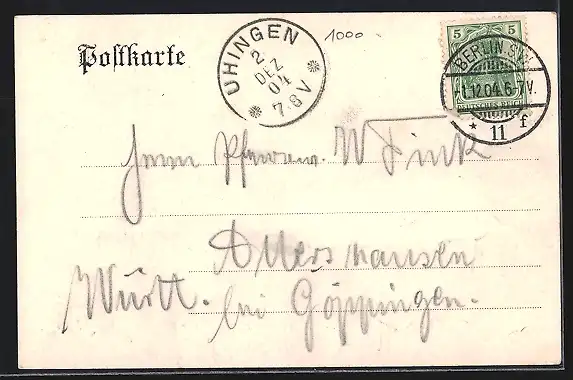 Postkarte
UHINGEN
2
DEZ
04
7-8 V
1000
5 5
BERLIN S.W.
1.12.04. 6-7V.
DEUTSCHES REICH
* 11 f
Herrn Pfarrer W Finck
Württ. bei Göppingen.